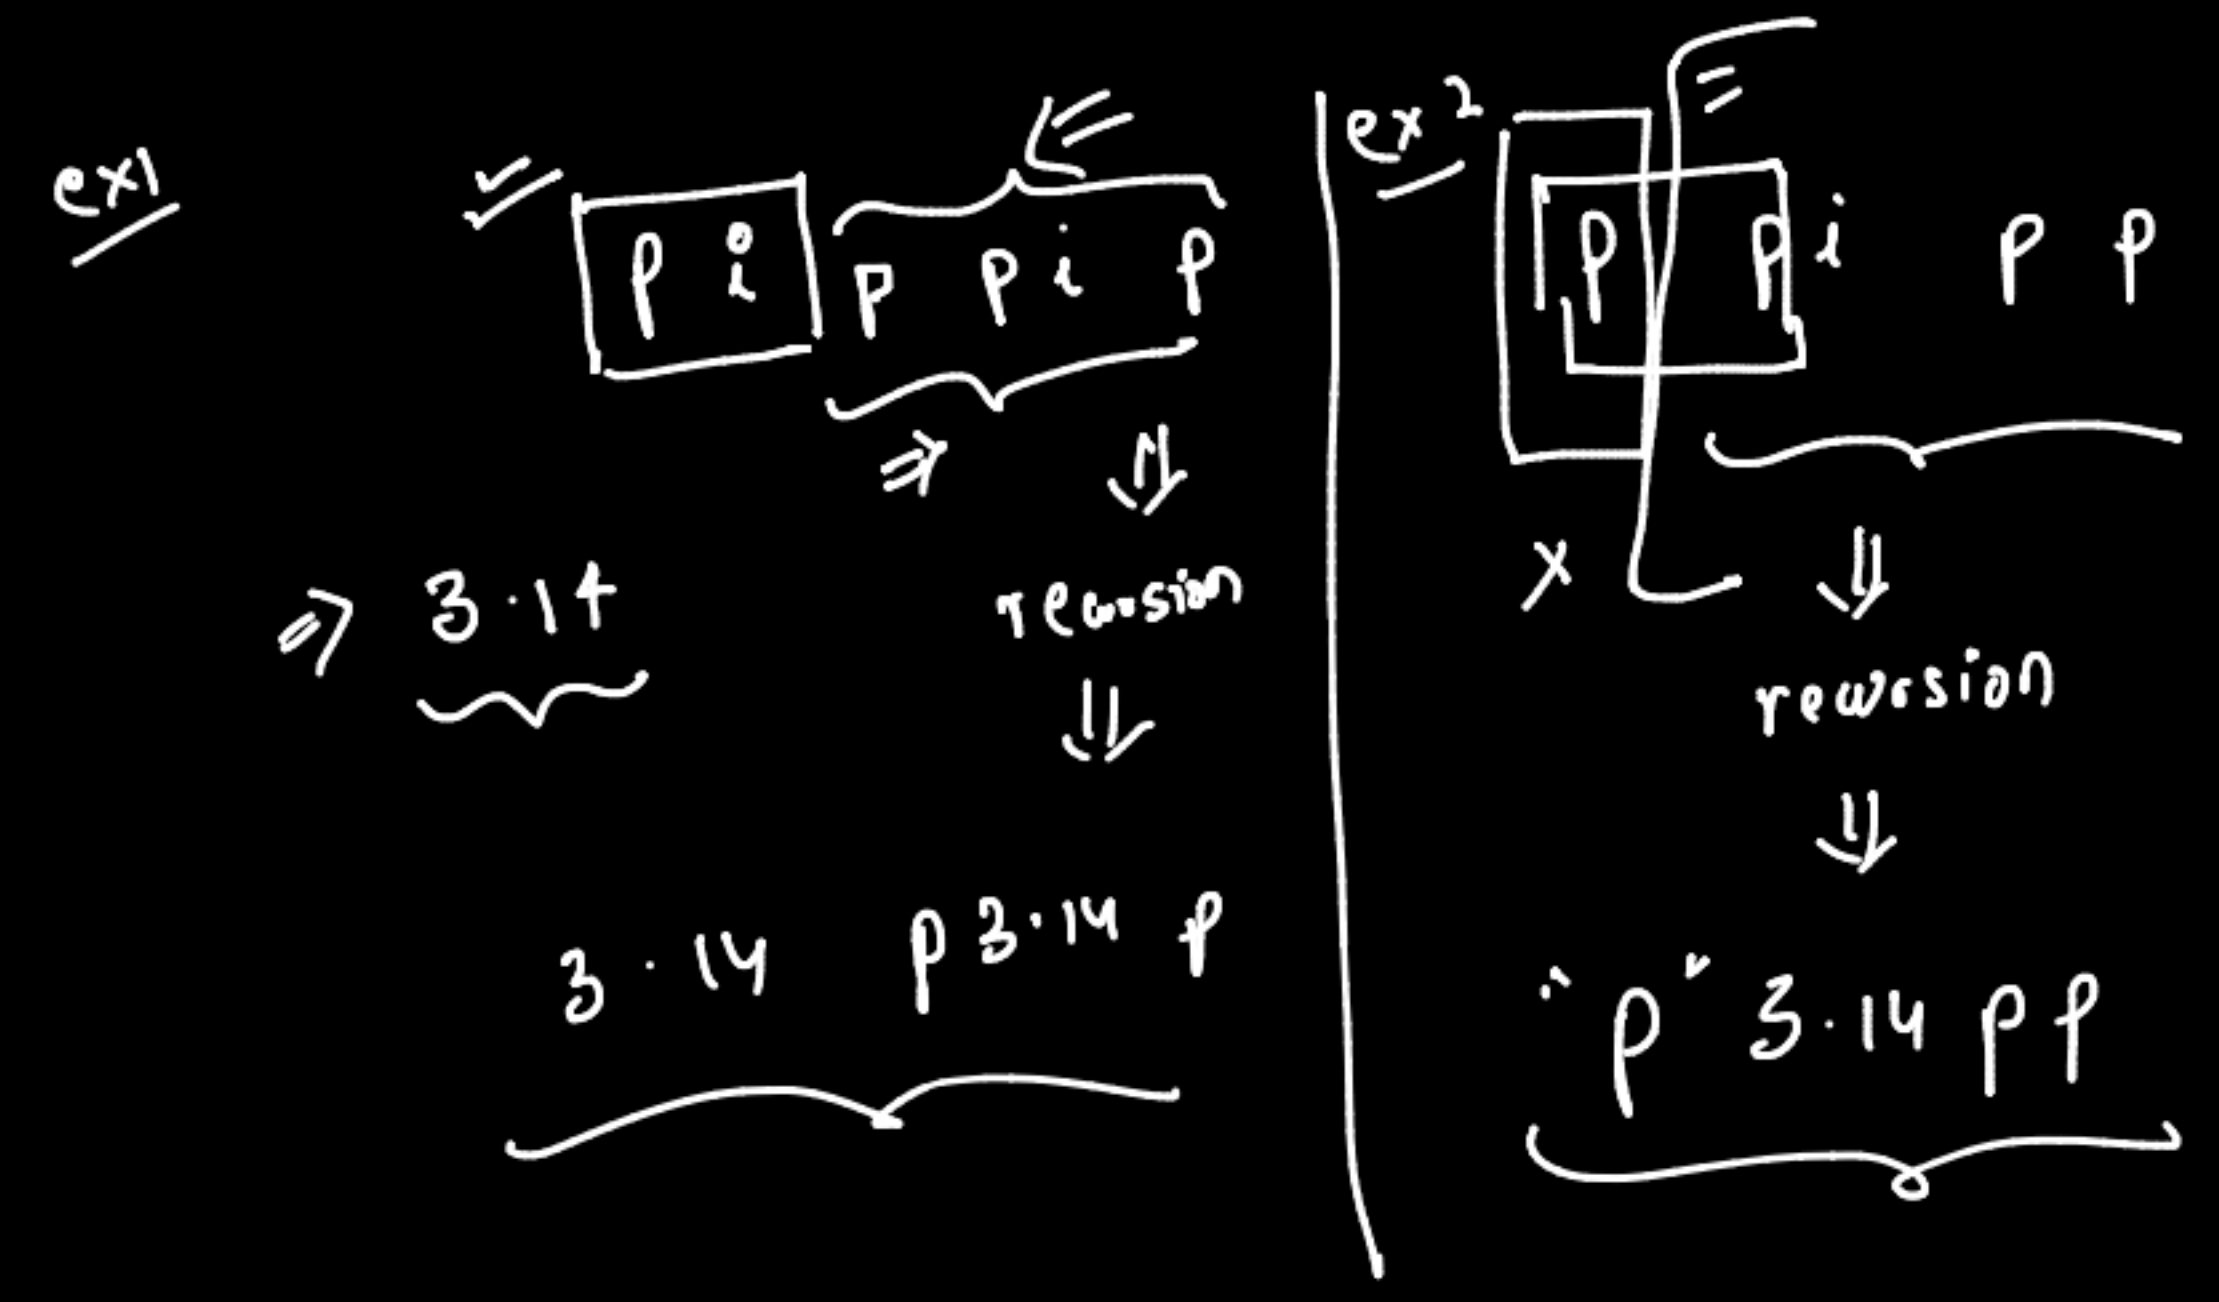 ex1
p i p p i p
⇒ 3.14
recursion
3.14 p 3.14 p
ex 2
p p i p p
x
recursion
"p" 3.14 p p